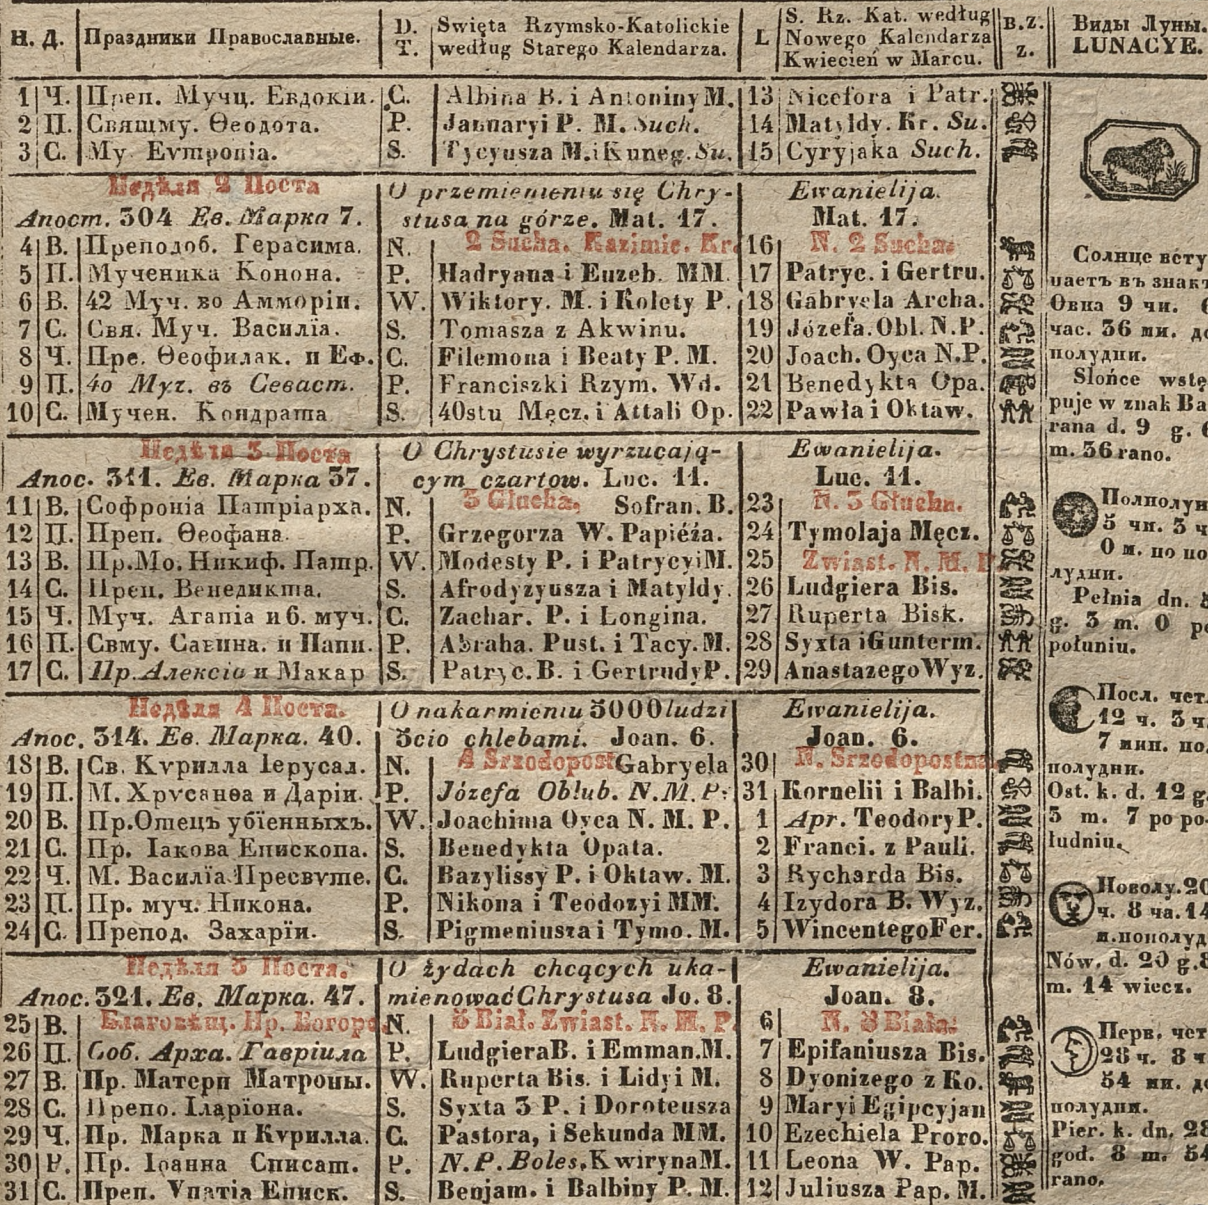 Н. Д. Праздники Православные. D. T. Swięta Rzymsko-Katolickie według Starego Kalendarza. L S. Rz. Kat. według Nowego Kalendarza Kwiecień w Marcu. B.Z. Z. Виды Луны. LUNACYE.
1 Ч. Преп. Мучц. Евдокіи. C. Albina B. i Antoniny M. 13 Nicefora i Patr.
2 П. Свящму. Ѳеодота. P. Jannaryi P. M. Such. 14 Matyldy. Kr. Su.
3 С. Му Еѵтропіа. S. Tycyusza M. i Kuneg. Su. 15 Cyryjaka Such.
Недѣля 2 Поста O przemienieniu się Chry- Ewanielija.
Апост. 304 Ев. Марка 7. stusa na górze. Mat. 17. Mat. 17.
4 В. Преподоб. Герасима. N. 2 Sucha. Kazimie. Kr. 16 N. 2 Sucha.
5 П. Мученика Конона. P. Hadryana i Euzeb. MM. 17 Patryc. i Gertru.
6 В. 42 Муч. во Амморіи. W. Wiktory. M. i Kolety P. 18 Gabryela Archa.
7 С. Свя. Муч. Василїа. S. Tomasza z Akwinu. 19 Józefa. Obl. N.P.
8 Ч. Пре. Ѳеофилак. и Еф. C. Filemona i Beaty P. M. 20 Joach. Oyca N.P.
9 П. 40 Муч. въ Севаст. P. Franciszki Rzym. Wd. 21 Benedykta Opa.
10 С. Мучен. Кондрата S. 40stu Męcz. i Attali Op. 22 Pawła i Oktaw.
Недѣля 3 Поста O Chrystusie wyrzucają- Ewanielija.
Апос. 311. Ев. Марка 37. cym czartow. Luc. 11. Luc. 11.
11 В. Софроніа Патріарха. N. 3 Głucha, Sofran. B. 23 N. 3 Głucha.
12 П. Преп. Ѳеофана. P. Grzegorza W. Papiéża. 24 Tymolaja Męcz.
13 В. Пр. Мо. Никиф. Патр. W. Modesty P. i Patrycyi M. 25 Zwiast. N. M. P
14 С. Преп. Венедикта. S. Afrodyzyusza i Matyldy. 26 Ludgiera Bis.
15 Ч. Муч. Агапіа и 6. муч. C. Zachar. P. i Longina. 27 Ruperta Bisk.
16 П. Свму. Савина. и Папи. P. Abraha. Pust. i Tacy. M. 28 Syxta i Gunterm.
17 С. Пр. Алексіа и Макар S. Patryc. B. i Gertrudy P. 29 Anastazego Wyz.
Недѣля 4 Поста. O nakarmieniu 5000 ludzi Ewanielija.
Апос. 314. Ев. Марка. 40. 5cio chlebami. Joan. 6. Joan. 6.
18 В. Св. Кѵрилла Іерусал. N. 4 Srzodopost Gabryela 30 N. Srzedopostna
19 П. М. Хрѵсанѳа и Даріи. P. Józefa Oblub. N.M.P. 31 Kornelii i Balbi.
20 В. Пр. Отецъ убїенныхъ. W. Joachima Oyca N. M. P. 1 Apr. Teodory P.
21 С. Пр. Іакова Епископа. S. Benedykta Opata. 2 Franci. z Pauli.
22 Ч. М. Василїа Пресвѵте. C. Bazylissy P. i Oktaw. M. 3 Rycharda Bis.
23 П. Пр. муч. Никона. P. Nikona i Teodozyi MM. 4 Izydora B. Wyz.
24 С. Препод. Захарїи. S. Pigmeniusza i Tymo. M. 5 Wincentego Fer.
Недѣля 5 Поста. O żydach chcących uka- Ewanielija.
Апос. 321. Ев. Марка. 47. mienować Chrystusa Jo. 8. Joan. 8.
25 В. Благовѣщ. Пр. Богоро. N. 5 Biał. Zwiast. N. M. P. 6 N. 5 Biała.
26 П. Соб. Арха. Гавріила P. Ludgiera B. i Emman. M. 7 Epifaniusza Bis.
27 В. Пр. Матери Матроны. W. Ruperta Bis. i Lidyi M. 8 Dyonizego z Ko.
28 С. Препо. Іларіона. S. Syxta 3 P. i Doroteusza 9 Maryi Egipcyjan
29 Ч. Пр. Марка и Кѵрилла. C. Pastora, i Sekunda MM. 10 Ezechiela Proro.
30 П. Пр. Іоанна Списат. P. N.P. Boles, Kwiryna M. 11 Leona W. Pap.
31 С. Преп. Ѵпатіа Еписк. S. Benjam. i Balbiny P. M. 12 Juliusza Pap. M.
Солнце всту
паетъ въ знакъ
Овна 9 чи. 6
час. 36 ми. до
полудни.
Słońce wstę
puje w znak Ba
rana d. 9 g. 6
m. 36 rano.
Полнолун
5 чи. 3 ч
0 м. по по
лудни.
Pełnia dn. 5
g. 3 m. 0 po
połuniu.
Посл. чет.
12 ч. 3 ч.
7 мин. по.
полудни.
Ost. k. d. 12 g.
3 m. 7 po po-
łudniu.
Новолу. 20
ч. 8 ча. 14
м. пополуд
Nów. d. 20 g. 8
m. 14 wiecz.
Перв. чет
28 ч. 8 ч
54 ми. до
полудни.
Pier. k. dn. 28
god. 8 m. 54
rano.